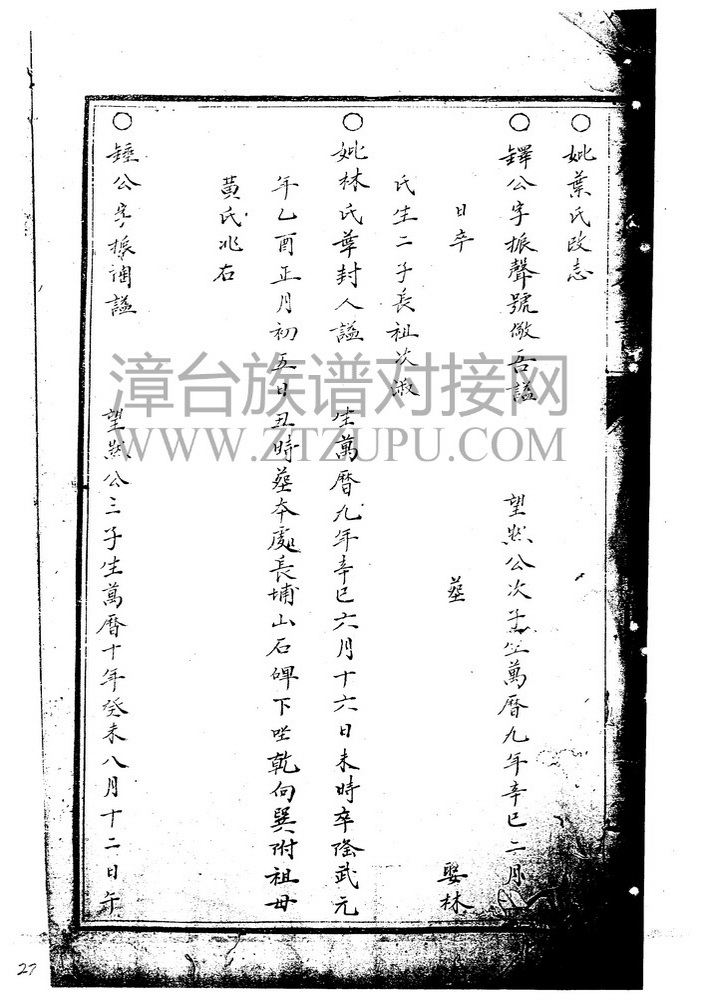 ○妣葉氏改志
○鐸公字振聲號儆吾謚 望然公次子生萬曆九年辛巳二月
日卒 葬 娶林
氏生二子長祖次淑
○妣林氏華封人謚 生萬曆九年辛巳六月十六日未時卒隆武元
年乙酉正月初五日丑時葬本處長埔山石碑下坐乾向巽附祖母
黃氏兆右
○錘公字振 謚 望然公三子生萬曆十年癸未八月十二日午
漳台族谱对接网
WWW.ZTZUPU.COM
27